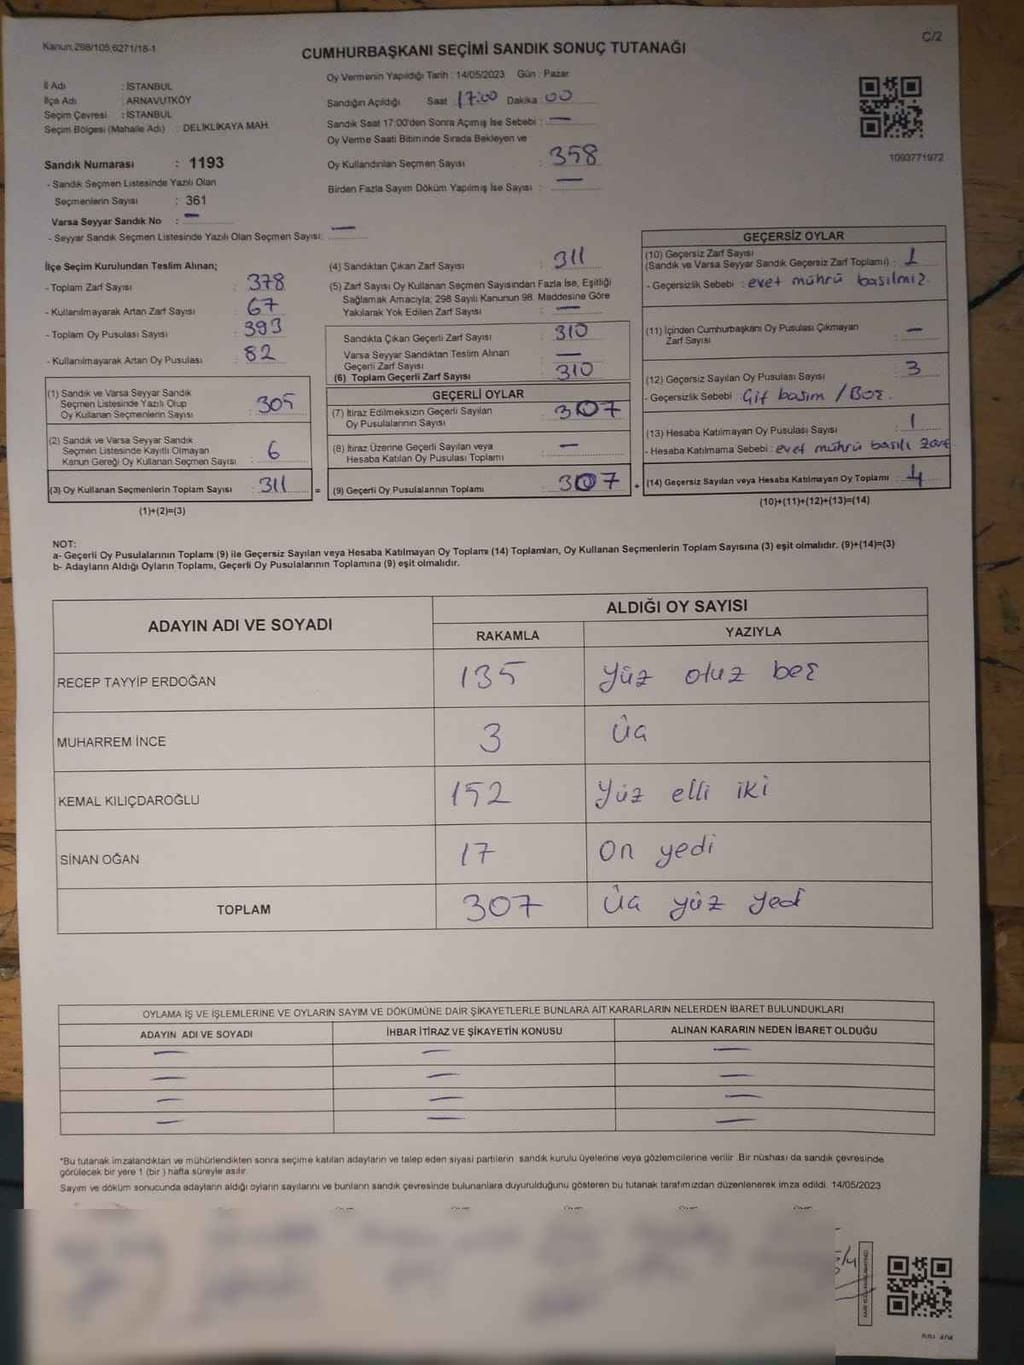 Kanun;298/105,6271/18-1
C/2
CUMHURBAŞKANI SEÇİMİ SANDIK SONUÇ TUTANAĞI
İl Adı : İSTANBUL
İlçe Adı : ARNAVUTKÖY
Seçim Çevresi : İSTANBUL
Seçim Bölgesi (Mahalle Adı) : DELİKLİKAYA MAH.
Sandık Numarası : 1193
- Sandık Seçmen Listesinde Yazılı Olan
Seçmenlerin Sayısı : 361
Varsa Seyyar Sandık No : —
- Seyyar Sandık Seçmen Listesinde Yazılı Olan Seçmen Sayısı: —
Oy Vermenin Yapıldığı Tarih : 14/05/2023 Gün : Pazar
Sandığın Açıldığı Saat 17:00 Dakika 00
Sandık Saat 17:00'den Sonra Açımış İse Sebebi : —
Oy Verme Saati Bitiminde Sırada Bekleyen ve
Oy Kullandırılan Seçmen Sayısı : 358
Birden Fazla Sayım Döküm Yapılmış İse Sayısı : —
1093771972
İlçe Seçim Kurulundan Teslim Alınan;
- Toplam Zarf Sayısı : 378
- Kullanılmayarak Artan Zarf Sayısı : 67
- Toplam Oy Pusulası Sayısı : 393
- Kullanılmayarak Artan Oy Pusulası : 82
(1) Sandık ve Varsa Seyyar Sandık
Seçmen Listesinde Yazılı Olup
Oy Kullanan Seçmenlerin Sayısı : 305
(2) Sandık ve Varsa Seyyar Sandık
Seçmen Listesinde Kayıtlı Olmayan
Kanun Gereği Oy Kullanan Seçmen Sayısı : 6
(3) Oy Kullanan Seçmenlerin Toplam Sayısı : 311
(1)+(2)=(3)
(4) Sandıktan Çıkan Zarf Sayısı : 311
(5) Zarf Sayısı Oy Kullanan Seçmen Sayısından Fazla İse, Eşitliği
Sağlamak Amacıyla; 298 Sayılı Kanunun 98. Maddesine Göre
Yakılarak Yok Edilen Zarf Sayısı : —
Sandıkta Çıkan Geçerli Zarf Sayısı : 310
Varsa Seyyar Sandıktan Teslim Alınan
Geçerli Zarf Sayısı : —
(6) Toplam Geçerli Zarf Sayısı : 310
GEÇERLİ OYLAR
(7) İtiraz Edilmeksizin Geçerli Sayılan
Oy Pusulalarının Sayısı : 307
(8) İtiraz Üzerine Geçerli Sayılan veya
Hesaba Katılan Oy Pusulası Toplamı : —
(9) Geçerli Oy Pusulalarının Toplamı : 307
GEÇERSİZ OYLAR
(10) Geçersiz Zarf Sayısı
(Sandık ve Varsa Seyyar Sandık Geçersiz Zarf Toplamı) : 1
- Geçersizlik Sebebi : evet mührü basılmış
(11) İçinden Cumhurbaşkanı Oy Pusulası Çıkmayan
Zarf Sayısı : —
(12) Geçersiz Sayılan Oy Pusulası Sayısı : 3
- Geçersizlik Sebebi Çift basım / Boş.
(13) Hesaba Katılmayan Oy Pusulası Sayısı : 1
- Hesaba Katılmama Sebebi : evet mührü basılı zarf
(14) Geçersiz Sayılan veya Hesaba Katılmayan Oy Toplamı : 4
(10)+(11)+(12)+(13)=(14)
NOT:
a- Geçerli Oy Pusulalarının Toplamı (9) ile Geçersiz Sayılan veya Hesaba Katılmayan Oy Toplamı (14) Toplamları, Oy Kullanan Seçmenlerin Toplam Sayısına (3) eşit olmalıdır. (9)+(14)=(3)
b- Adayların Aldığı Oyların Toplamı, Geçerli Oy Pusulalarının Toplamına (9) eşit olmalıdır.
ADAYIN ADI VE SOYADI ALDIĞI OY SAYISI
RAKAMLA YAZIYLA
RECEP TAYYİP ERDOĞAN 135 Yüz otuz beş
MUHARREM İNCE 3 Üç
KEMAL KILIÇDAROĞLU 152 Yüz elli iki
SİNAN OĞAN 17 On yedi
TOPLAM 307 Üç yüz yedi
OYLAMA İŞ VE İŞLEMLERİNE VE OYLARIN SAYIM VE DÖKÜMÜNE DAİR ŞİKAYETLERLE BUNLARA AİT KARARLARIN NELERDEN İBARET BULUNDUKLARI
ADAYIN ADI VE SOYADI İHBAR İTİRAZ VE ŞİKAYETİN KONUSU ALINAN KARARIN NEDEN İBARET OLDUĞU
— — —
— — —
— — —
— — —
*Bu tutanak imzalandıktan ve mühürlendikten sonra seçime katılan adayların ve talep eden siyasi partilerin sandık kurulu üyelerine veya gözlemcilerine verilir. Bir nüshası da sandık çevresinde
görülecek bir yere 1 (bir) hafta süreyle asılır.
Sayım ve döküm sonucunda adayların aldığı oyların sayılarını ve bunların sandık çevresinde bulunanlara duyurulduğunu gösteren bu tutanak tarafımızdan düzenlenerek imza edildi. 14/05/2023